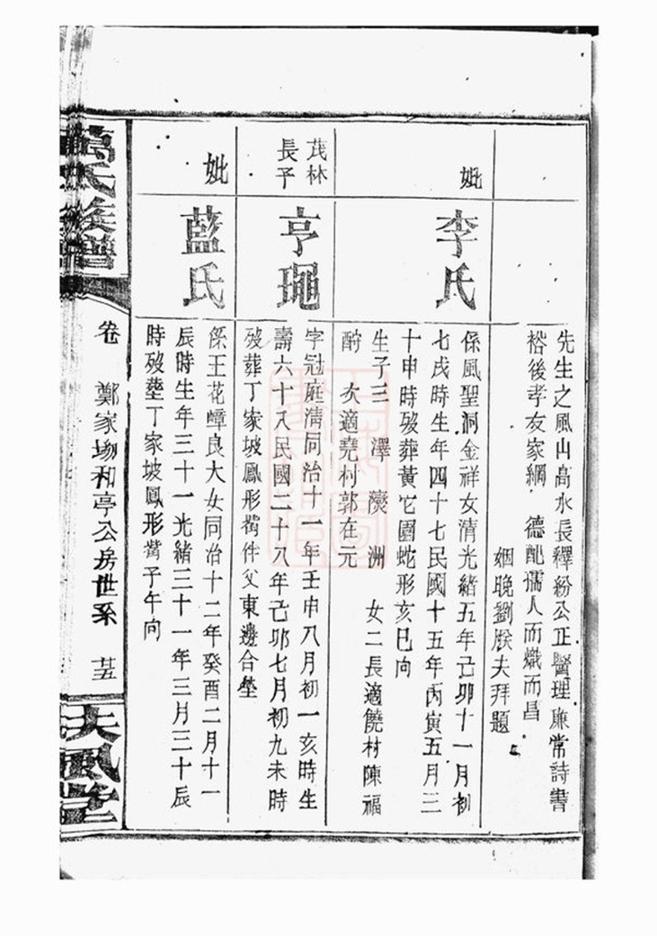 先生之風山高水長釋紛公正醫理廉常詩書
裕後孝友家綱 德配孺人而熾而昌
姻晚劉朕夫拜題
妣
李氏
係風聖洞金祥女清光緒五年己卯十一月初
七戌時生年四十七民國十五年丙寅五月三
十申時歿葬黃它園蛇形亥巳向
生子三 澤 濙 洲 女二長適饒村陳福
酧 次適堯村郭在元
茂林
長子
亨
字冠庭清同治十一年壬申八月初一亥時生
壽六十八民國二十八年己卯七月初九未時
歿葬丁家坡鳳形嘴件父東邊合塋
妣
藍氏
係王花嶂良大女同治十二年癸酉二月十一
辰時生年三十一光緒三十一年三月三十辰
時歿塟丁家坡鳳形嘴子午向
萬氏族譜
卷 鄭家坳和亭公房世系 廿五
扶風堂